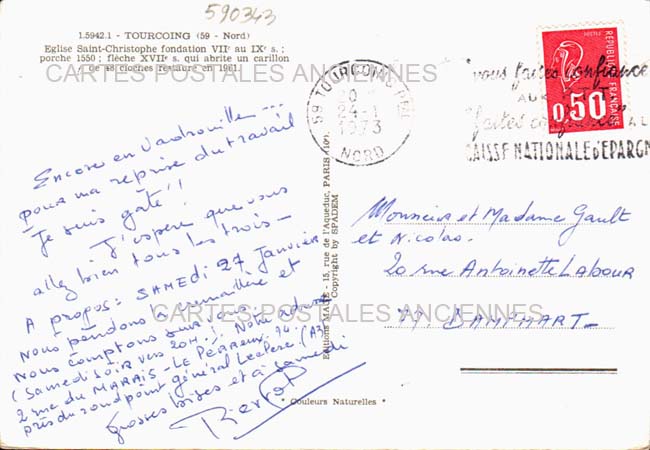 590343
1.5942.1 - TOURCOING (59 - Nord)
Eglise Saint-Christophe fondation VIIe au IXe s. ;
porche 1550 ; flèche XVIIe s. qui abrite un carillon
de 48 cloches restauré en 1961.
CARTES POSTALES ANCIENNES
59 TOURCOING PPAL
24-1
1973
NORD
REPUBLIQUE FRANÇAISE
0,50
vous faites confiance
AUX
faites confiance A LA
CAISSE NATIONALE d'EPARGNE
Encore en vadrouille ...
pour ma reprise du travail
Je suis gâté !!
J'espère que vous
allez bien tous les trois -
A propos : SAMEDI 27 Janvier
Nous pendons la crémaillère et
Nous comptons sur
(Samedi soir vers 20H.). Notre
2 rue du MARAIS - LE PERREUX. 94.
près du rond point général Leclerc (A3)
Grosses bises et à samedi
Pierrot
Editions MAGE - 15, rue de l'Aqueduc, PARIS (10e)
Copyright by SPADEM
Monsieur et Madame Gault
et Nicolas.
20 rue Antoinette Labour
77. DAMPMART -
CARTES POSTALES ANCIENNES
* Couleurs Naturelles *